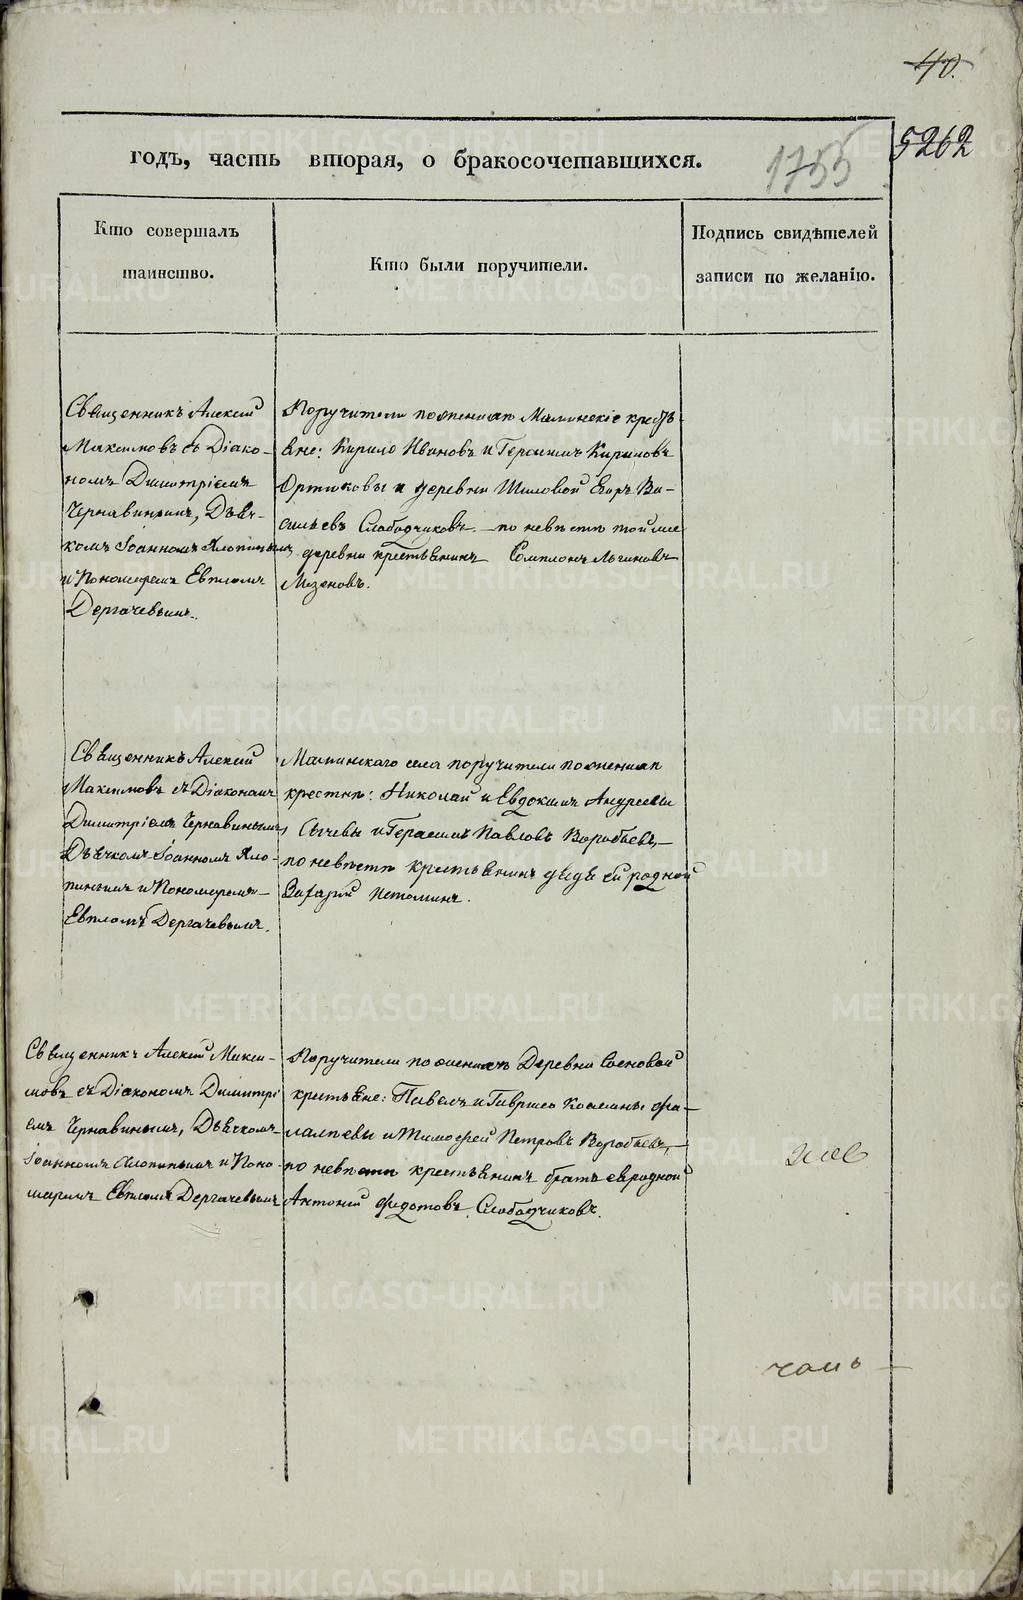 40.
5262
годъ, часть вторая, о бракосочетавшихся.
1755
Кто совершалъ
таинство.
Кто были поручители.
Подпись свидѣтелей
записи по желанію.
Священникъ Алексій
Максимовъ съ Діако-
номъ Димитріемъ
Чернавинымъ, Дьяч-
комъ Іоанномъ Хлопинымъ
и Пономаремъ Евпломъ
Дергачевымъ.
Поручители по женихѣ Маминскіе кресть
яне: Кирило Ивановъ и Герасимъ Кириловъ
Ортюковы и деревни Шиловой Егоръ Ва-
сильевъ Слободчиковъ – по невѣстѣ той же
деревни крестьянинъ Сомпсонъ
Мезеновъ.
Священникъ Алексій
Максимовъ съ Діакономъ
Димитріемъ Чернавинымъ,
Дьячкомъ Іоанномъ Хло-
пинымъ и Пономаремъ
Евпломъ Дергачевымъ.
Маминскаго села поручители по женихѣ
крестьяне: Николай и Евдокимъ Андреевы
Сычевы и Герасимъ Павловъ Воробьевъ, –
по невѣстѣ крестьянинъ дядя ей родной
Захарій Потоминъ.
Священникъ Алексій Макси-
мовъ съ Діакономъ Димитрі
емъ Чернавинымъ, Дьячкомъ
Іоанномъ Хлопинымъ и Поно-
маремъ Евпломъ Дергачевымъ
Поручители по женихѣ Деревни Сосновой
крестьяне: Павелъ и Гаврило Козмины
и Тимофей Петровъ Воробьевъ, –
по невѣстѣ крестьянинъ братъ ея родной
Антоній Федотовъ Слободчиковъ.
чамъ –
METRIKI.GASO-URAL.RU